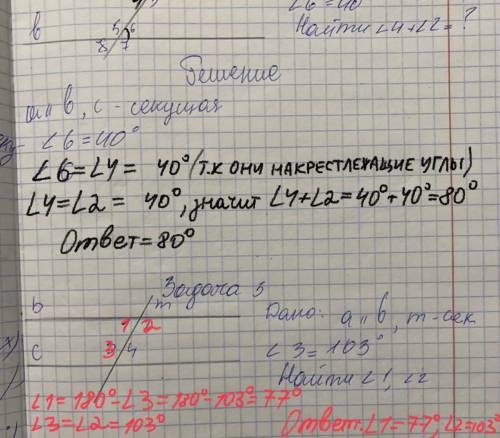 ∠6=40
Найти ∠4+∠2=?
b 5 6
8 7
Решение
a||b, c - секущая
∠6=40°
∠6=∠4= 40° (Т.К ОНИ НАКРЕСТЛЕЖАЩИЕ УГЛЫ)
∠4=∠2= 40°, значит ∠4+∠2=40°+40°=80°
Ответ=80°
Задача 3
b m
1 2
c 3 4
Дано: a||b, m-сек
∠3=103°
Найти ∠1, ∠2
∠1=180°-∠3=180°-103°=77°
∠3=∠2=103°
Ответ: ∠1=77°, ∠2=103°